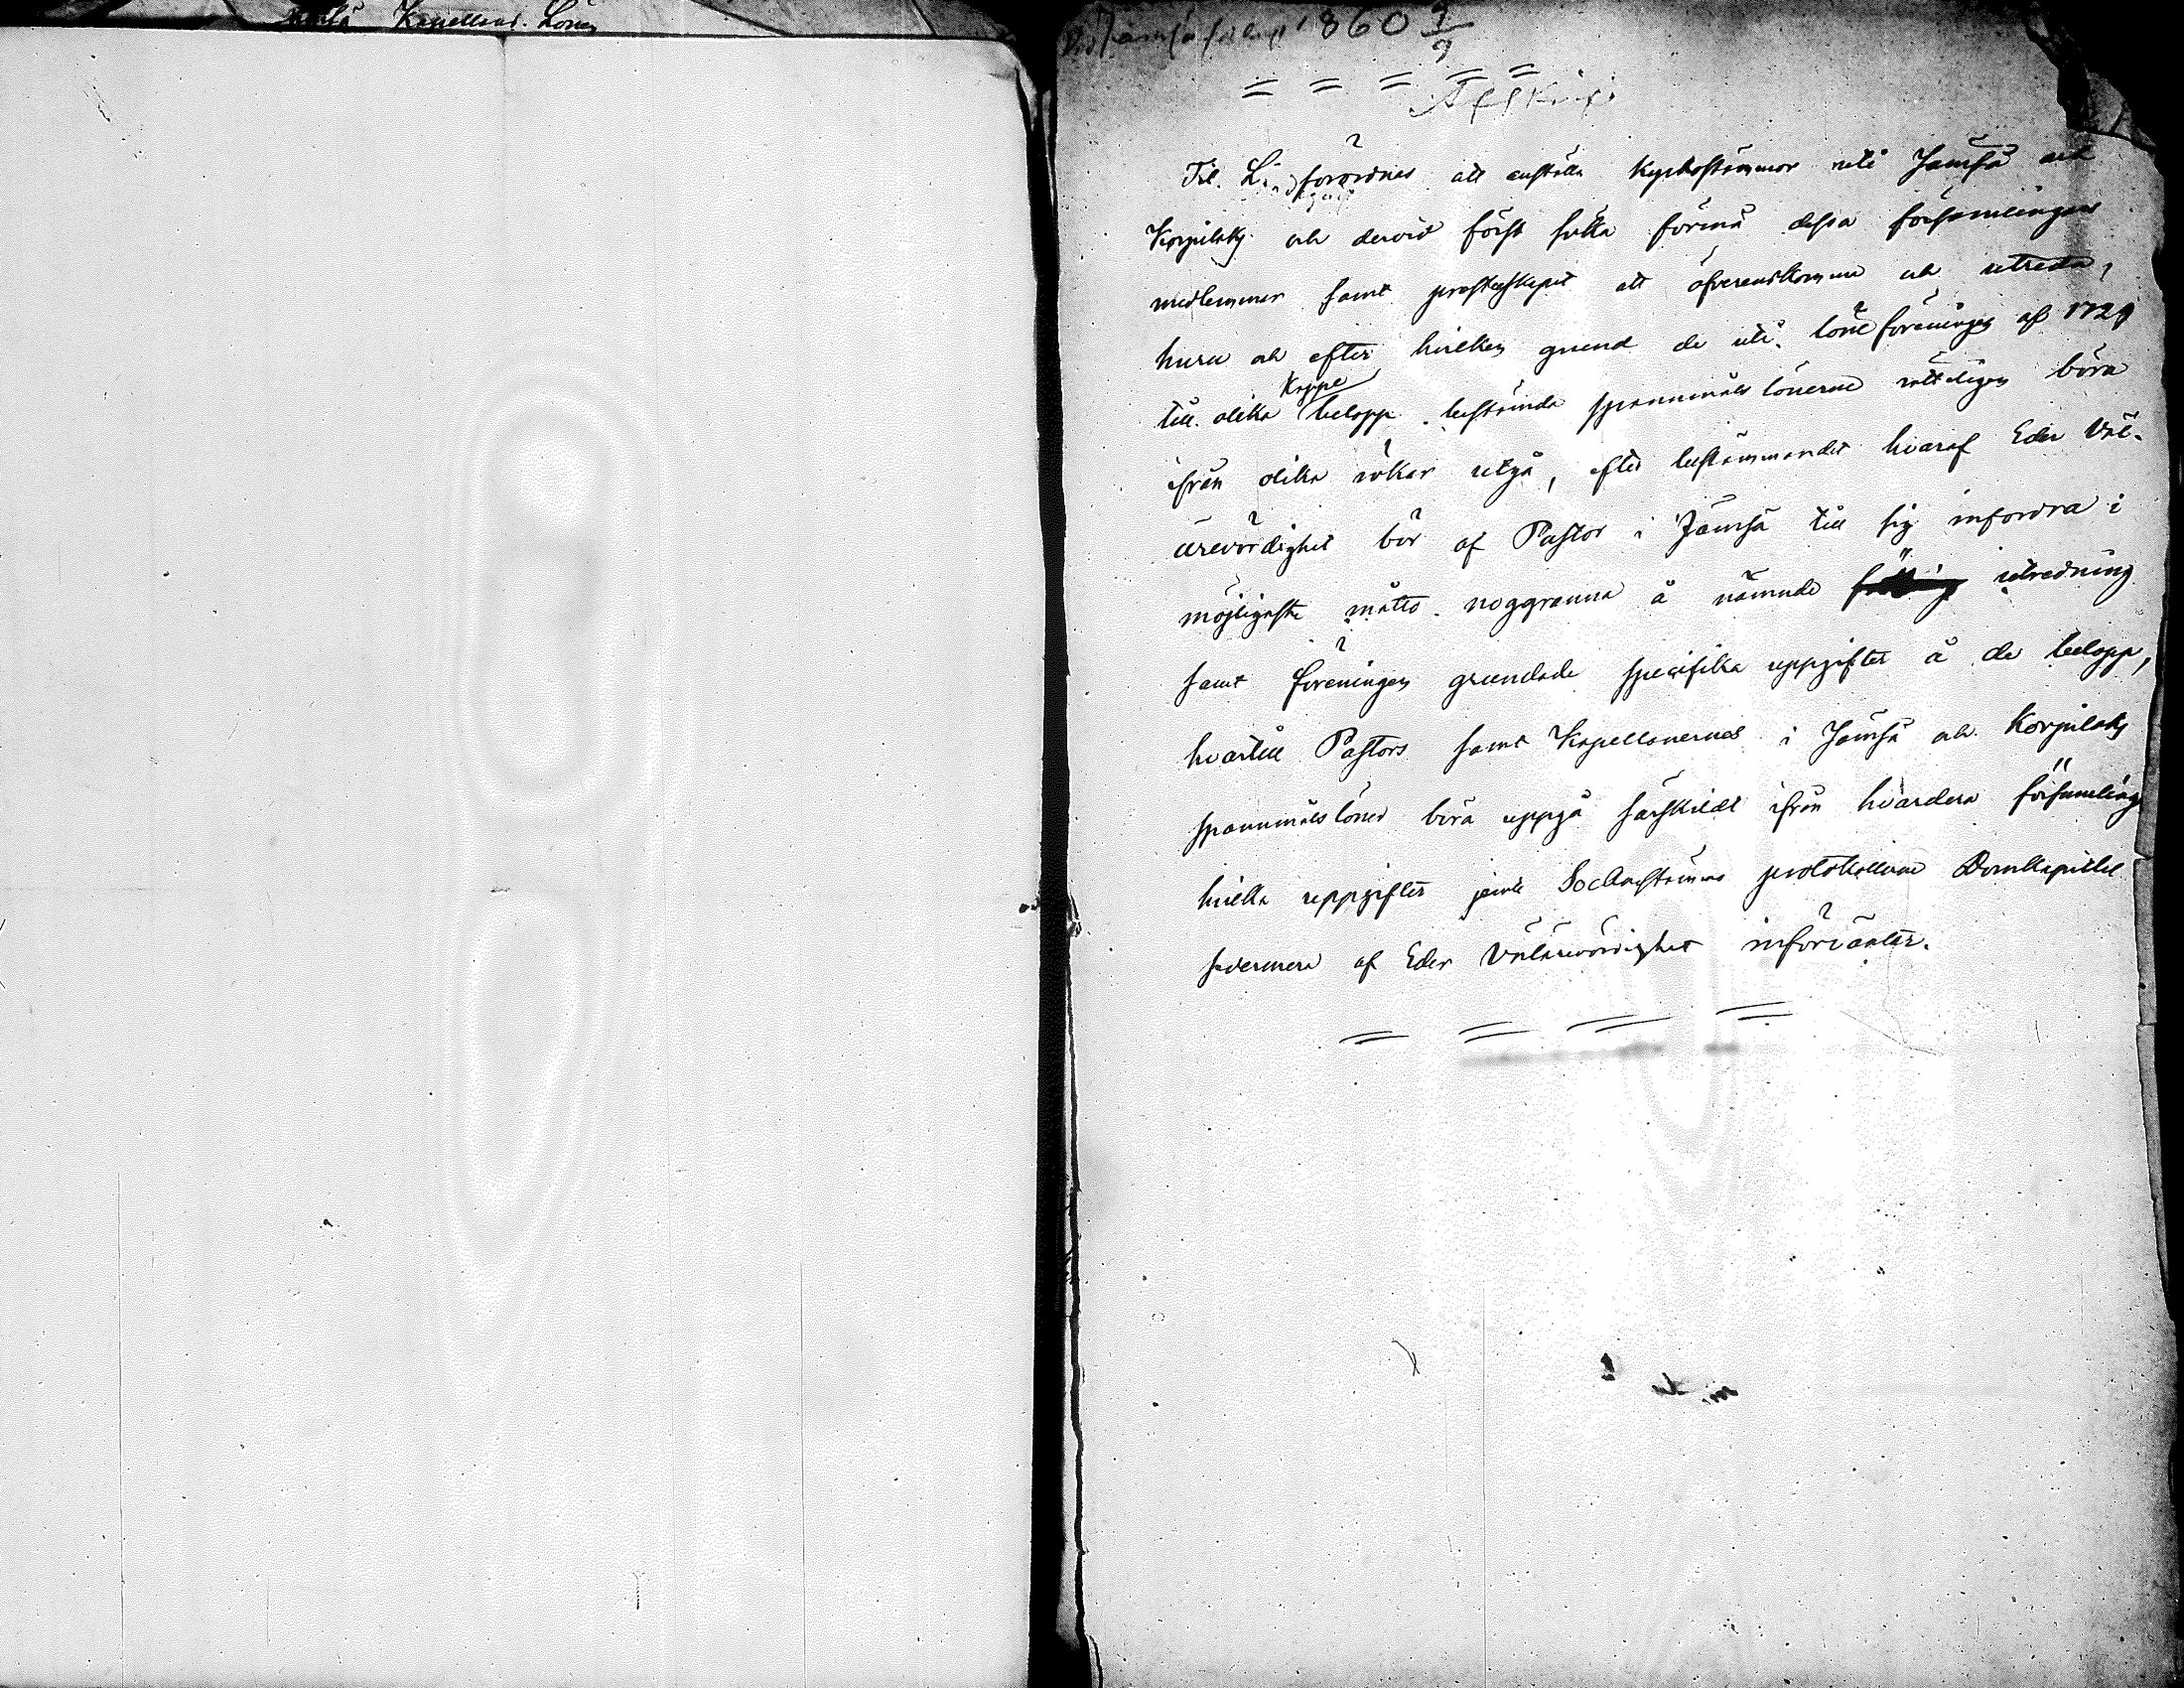 Kapellans Lönen
1860 9/9
Afskrift
Til. L. förordnas att anställa kyrkostämmor uti Jämsä och
Korpilaks och dervid först söka förmå dessa församlingars
medlemmar samt presterskapet att öfverenskomma och utreda,
huru och efter hvilken grund de uti löneföreningen af 1729
Kappe
till olika belopp bestämda spannmåls lönerne rätteligen böra
ifrån olika rökar utgå, efter bestämmandet hvaraf Eder Väl-
ärevördighet bör af Pastor i Jämsä till sig infordra i
möjligaste måtto noggranna å nämnde utredning
samt föreningen grundade specifika uppgifter å de belopp,
hvartill Pastors samt Kapellanernas i Jämsä och Korpilaks
spannmålslöner böra uppgå särskildt ifrån hvardera församling
hvilka uppgifter jemte Sockenstämmo protokollerne Domkapitlet
sedermera af Eder Välärevördighet införväntar.